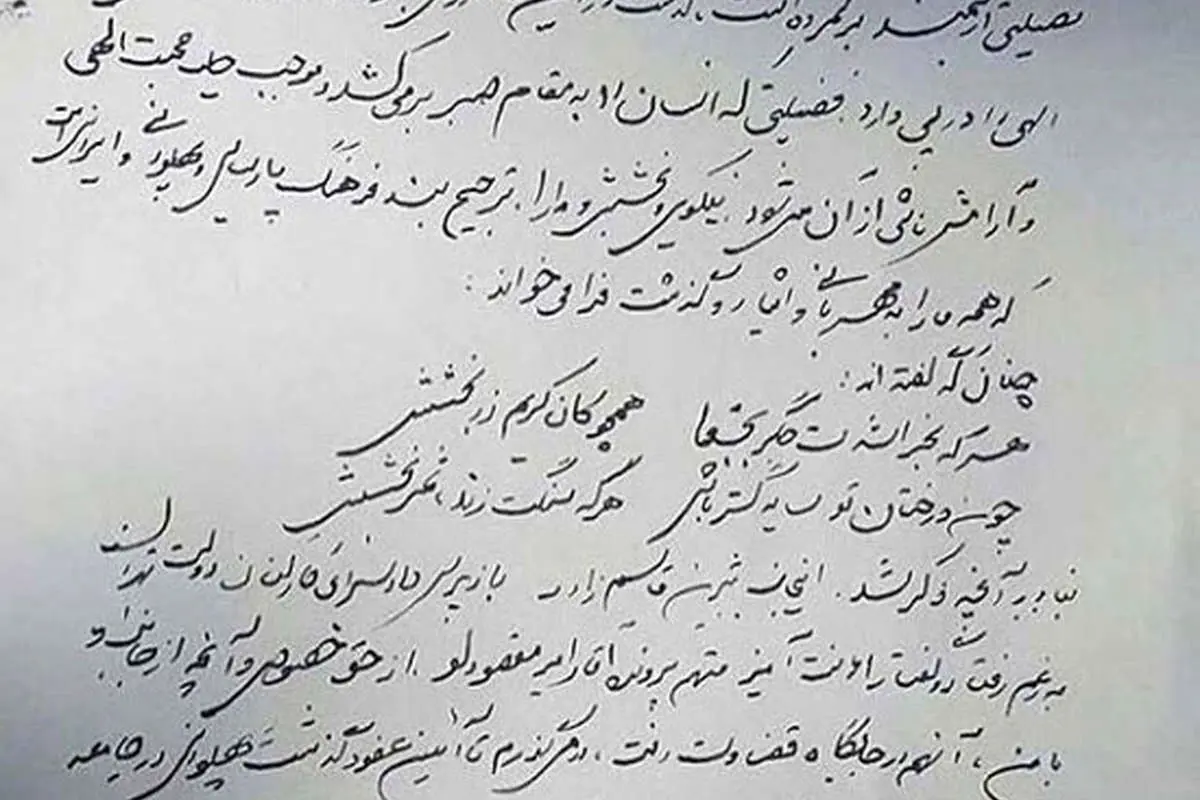 فضیلتی ارجمند برشمرده است، که
الهی را در پی دارد. فضیلتی که انسان را به مقام صبر برمی‌کشد و موجب جلب محبت الهی
و آرامش ناشی از آن می‌شود. نیکویی و بخشش و مدارا، ترجیح بند فرهنگ پارسایی و پهلوانی و ایرانی است
که همه ما را به مهربانی و ایثار و گذشت فرا می‌خواند:
چنان که گفته اند:
هر که بخراشدت جگر به جفا همچو کان کریم زر بخشش
چون درختان تو سایه گستر باش هر که سنگت زند، ثمر بخشش
بنا بر آنچه ذکر شد. اینجانب قاسم زاده بازپرس دادسرای کارکنان دولت تهران
به رغم رفتار و گفتار اهانت آمیز متهم پرونده آقای امیر مقصودلو. از حق خصوصی و آنچه از جانب او
با من، آنهم در جایگاه قضاوت رفت، درمی‌گذرم تا آیین عفو و گذشت پهلوانی در جامعه